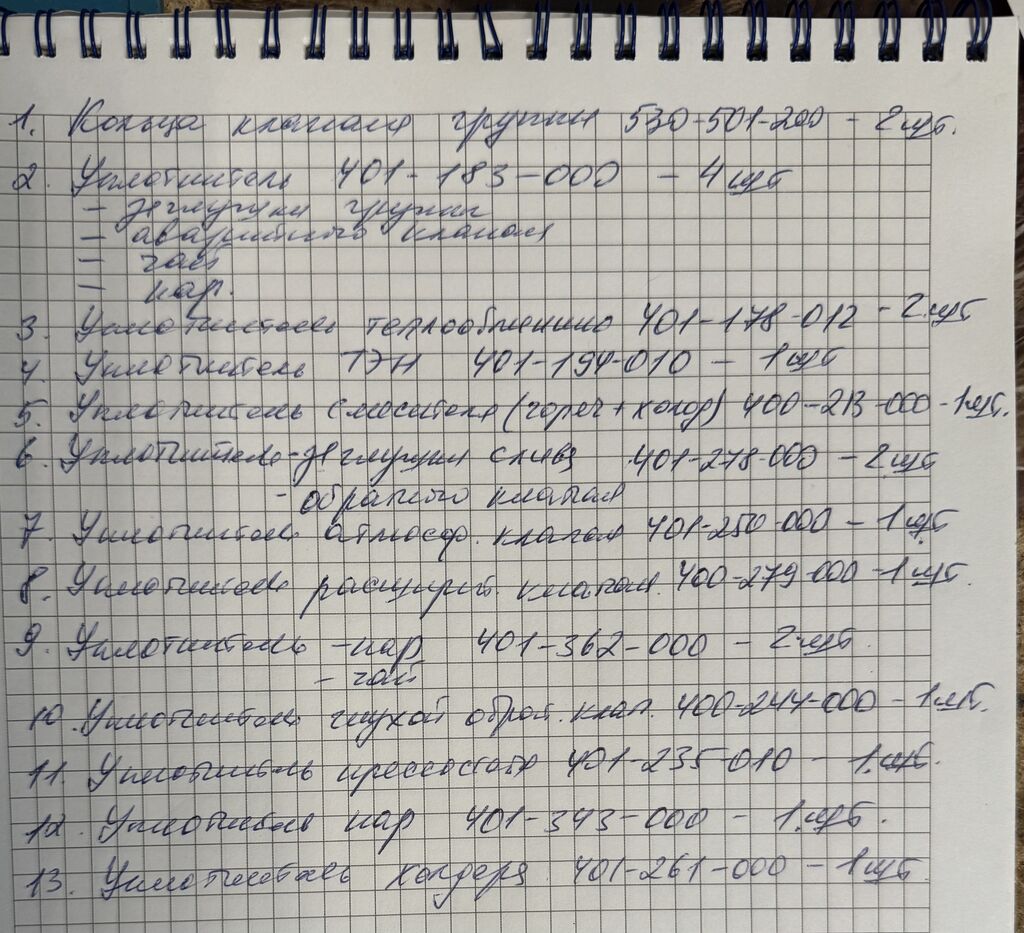 1. Кольца клапана группы 530-501-200 - 2 шт.
2. Уплотнитель 401-183-000 - 4 шт
- заглушки группы
- аварийного клапана
- чай
- пар.
3. Уплотнитель теплообменника 401-178-012 - 2 шт
4. Уплотнитель ТЭН 401-194-010 - 1 шт
5. Уплотнитель смесителя (горяч + холод) 400-213-000 - 1 шт.
6. Уплотнитель - заглушки слива 401-278-000 - 2 шт
- обратного клапана
7. Уплотнитель атмосф. клапана 401-250-000 - 1 шт
8. Уплотнитель расширит. клапана 400-279-000 - 1 шт.
9. Уплотнитель - пар 401-362-000 - 2 шт
- чай
10. Уплотнитель глухой обрат. клап. 400-244-000 - 1 шт.
11. Уплотнитель прессостата 401-235-010 - 1 шт.
12. Уплотнитель пар 401-343-000 - 1 шт.
13. Уплотнитель холдера 401-261-000 - 1 шт